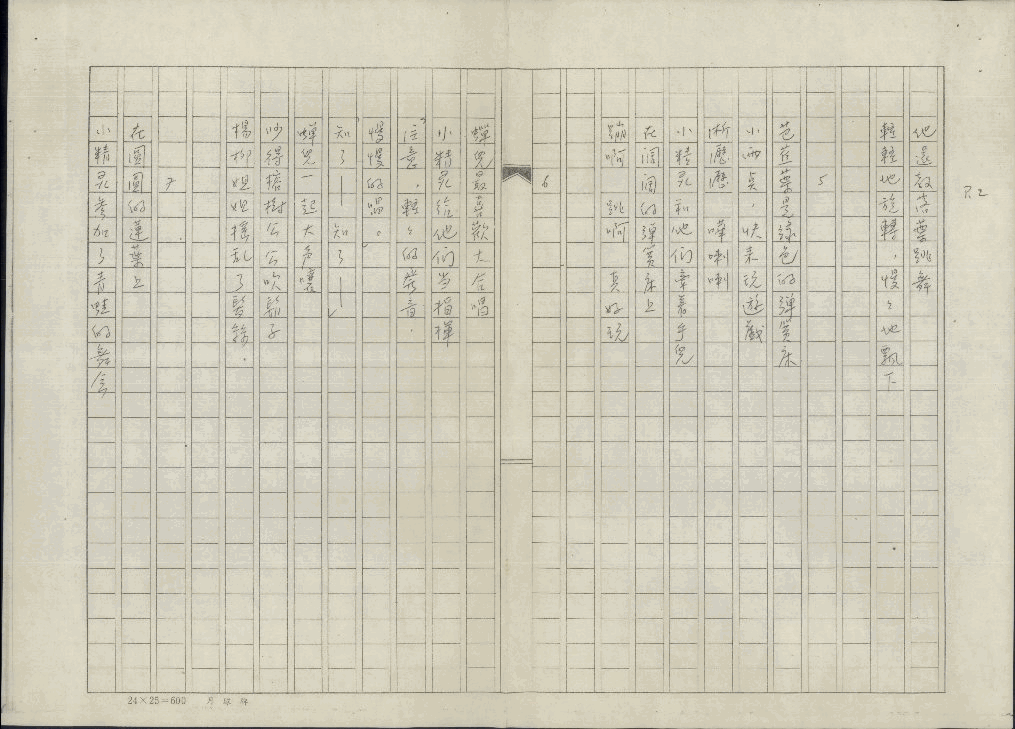 P.2
他還教落葉跳舞
輕輕地旋轉，慢々地飄下
5
芭蕉葉是綠色的彈簧床
小雨点，快来玩遊戲
淅瀝瀝 嘩喇喇
小精灵和他们牽着手兒
在闊闊的彈簧床上
蹦啊 跳啊 真好玩
6
蟬兒最喜歡大合唱
小精灵給他们当指揮
“注意，輕々的發音，
慢慢的唱。”
知了——知了——
蟬兒一起大声嚷
吵得榕樹公公吹鬍子
楊柳姐姐搖乱了髮絲。
7
在圓圓的蓮葉上
小精灵参加了青蛙的舞会
24×25=600 月球牌